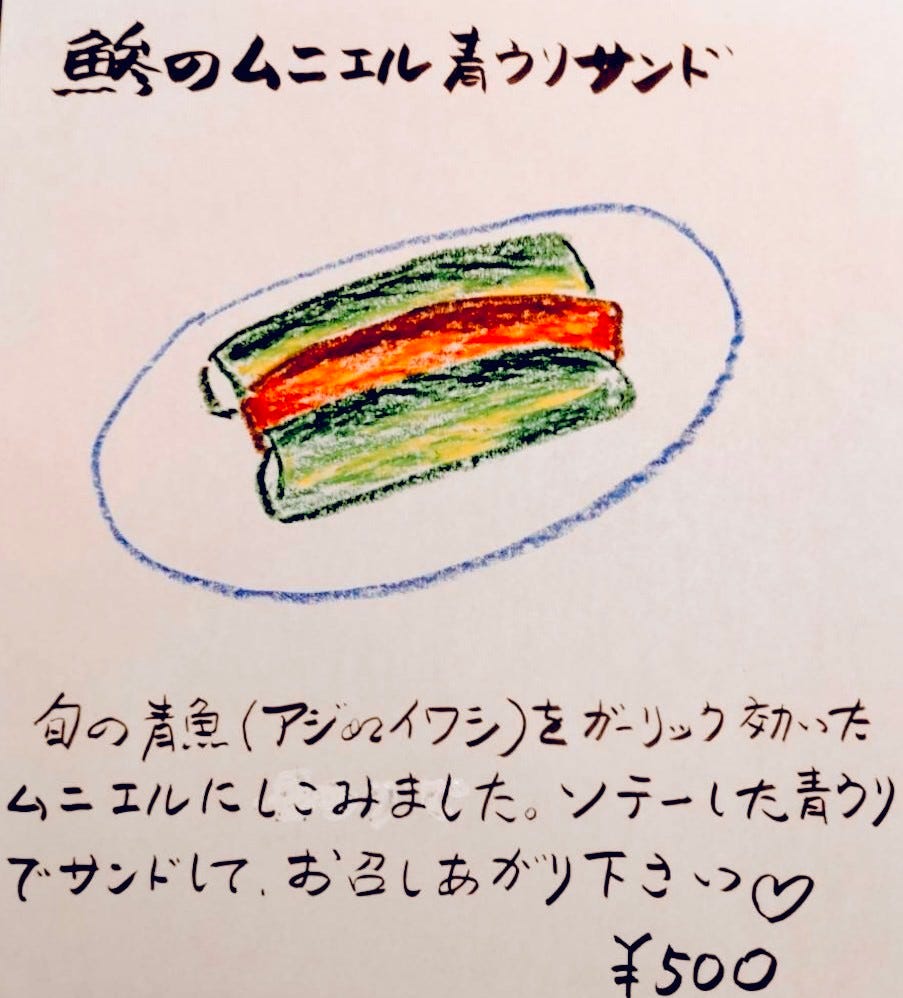 鯵のムニエル青ウリサンド
旬の青魚(アジorイワシ)をガーリック効いた
ムニエルにしこみました。ソテーした青ウリ
でサンドして、お召しあがり下さい♡
¥500